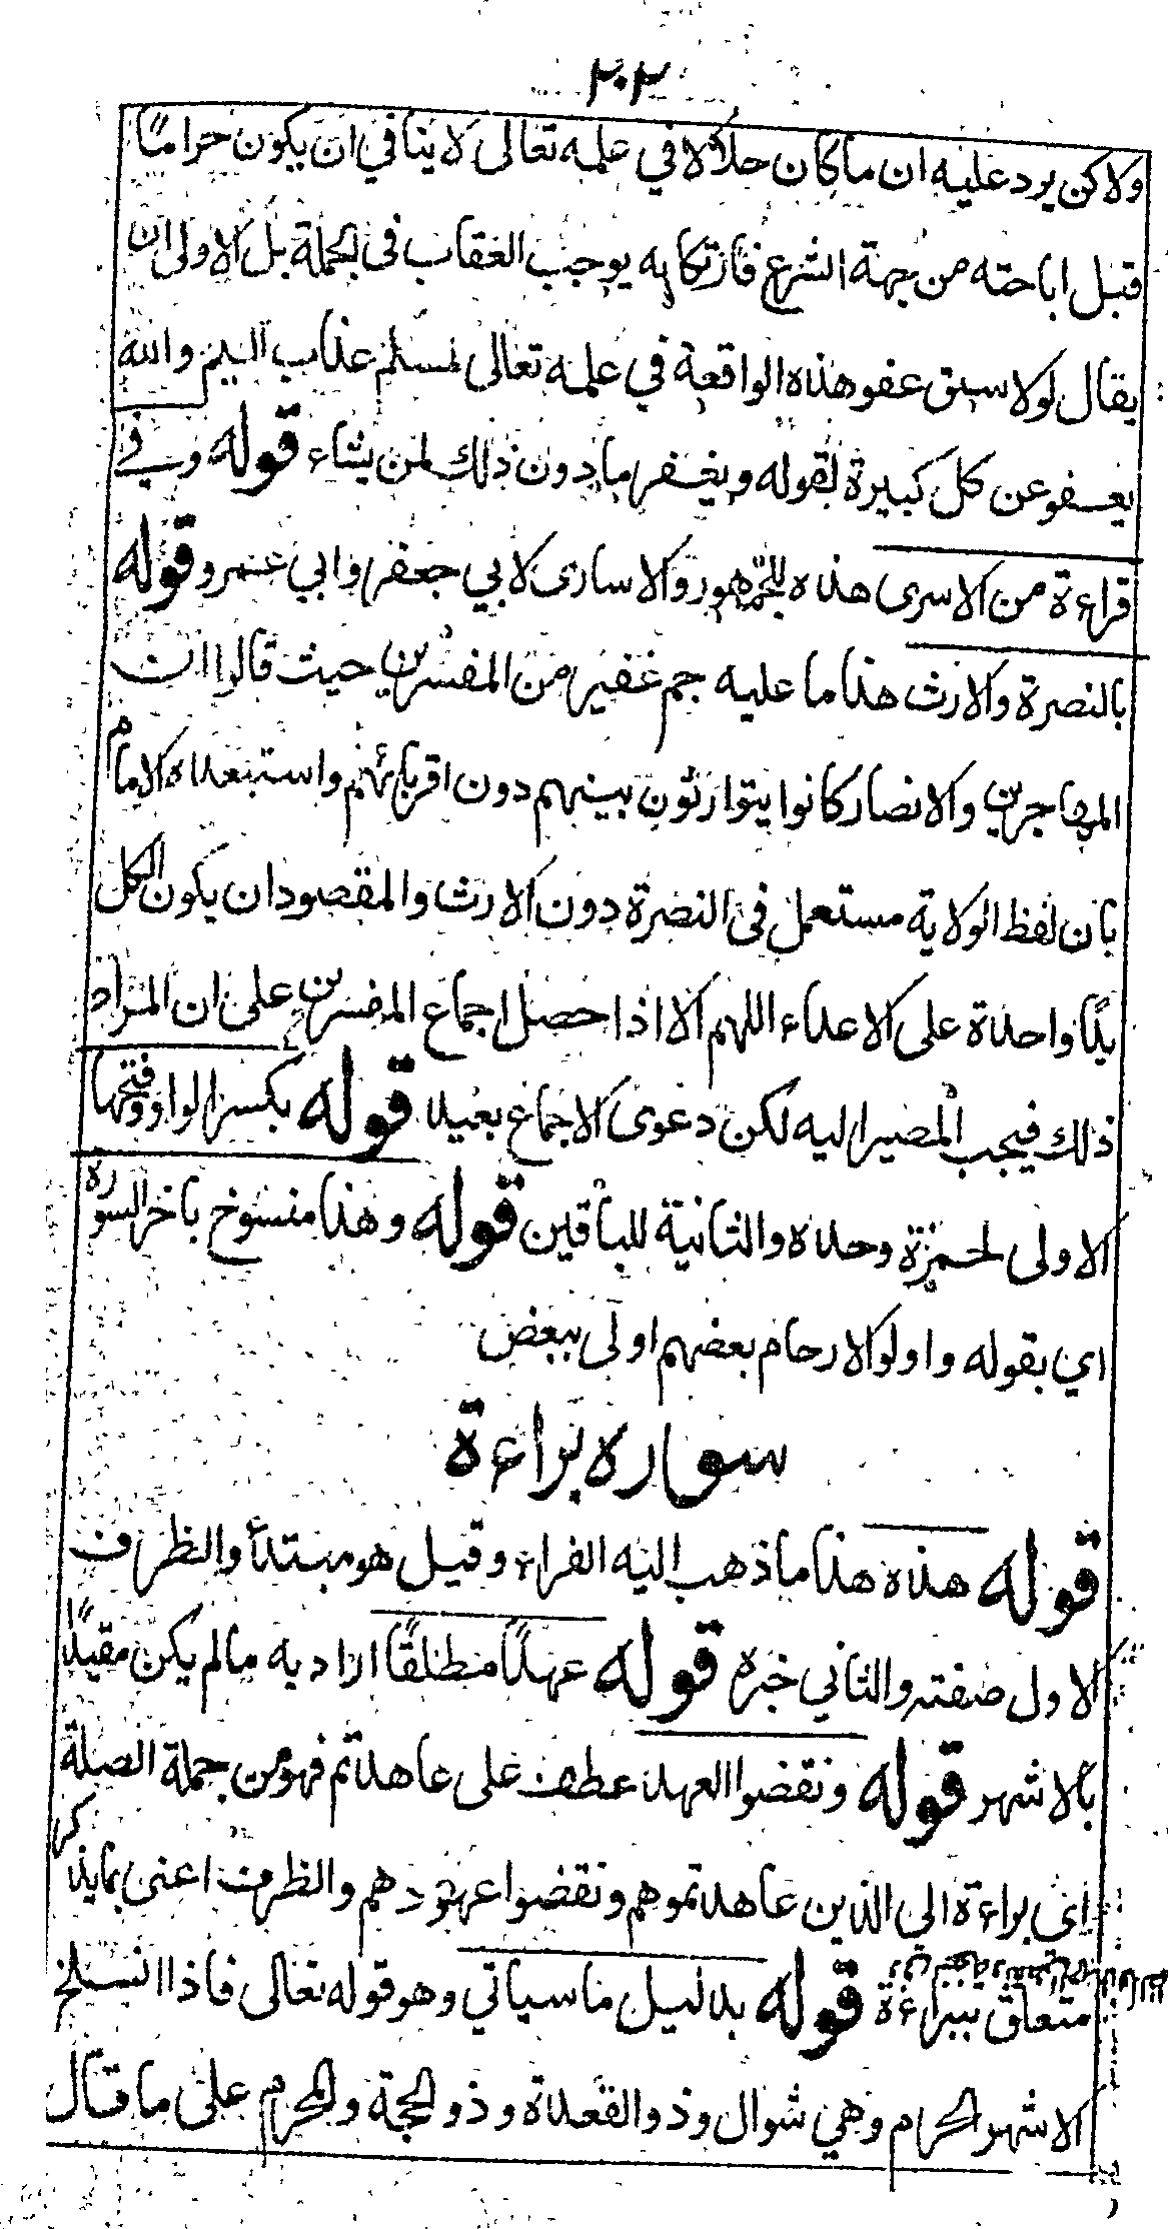 ٢٠٢
ولاكن يرد عليه ان ما كان حلالا في علمه تعالى لا ينافي ان يكون حراما
قبل اباحته من جهة الشرع فارتكابه يوجب العقاب في الجملة بل الاولى ان
يقال لولا سبق عفو هذه الواقعة في علمه تعالى لمسكم عذاب اليم والله
يعفو عن كل كبيرة لقوله ويغفر ما دون ذلك لمن يشاء قوله وفي
قراءة من الاسرى هذه للجمهور والاسارى لابي جعفر وابي عمرو قوله
بالنصرة والارث هذا ما عليه جم غفير من المفسرين حيث قالوا ان
المهاجرين والانصار كانوا يتوارثون بينهم دون اقربائهم واستبعده الامام
بان لفظ الولاية مستعمل في النصرة دون الارث والمقصود ان يكون الكل
يدًا واحدة على الاعداء اللهم الا اذا حصل اجماع المفسرين على ان المراد
ذلك فيجب المصير اليه لكن دعوى الاجماع بعيد قوله بكسر الواو وفتحها
الاولى لحمزة وحده والثانية للباقين قوله وهذا منسوخ باخر السورة
اي بقوله واولو الارحام بعضهم اولى ببعض
سوره براءة
قوله هذه هذا ما ذهب اليه الفراء وقيل هو مبتدأ والظرف
الاول صفته والثاني خبره قوله عهدًا مطلقًا اراد به مالم يكن مقيدًا
بالاشهر قوله ونقضوا العهد عطف على عاهدتم فهو من جملة الصلة
اى براءة الى الذين عاهدتموهم ونقضوا عهودهم والظرف اعنى بما يذكر
متعلق ببراءة قوله بدليل ما سياتي وهو قوله تعالى فاذا انسلخ
الاشهر الحرم وهي شوال وذو القعدة وذو الحجة والمحرم على ما قال